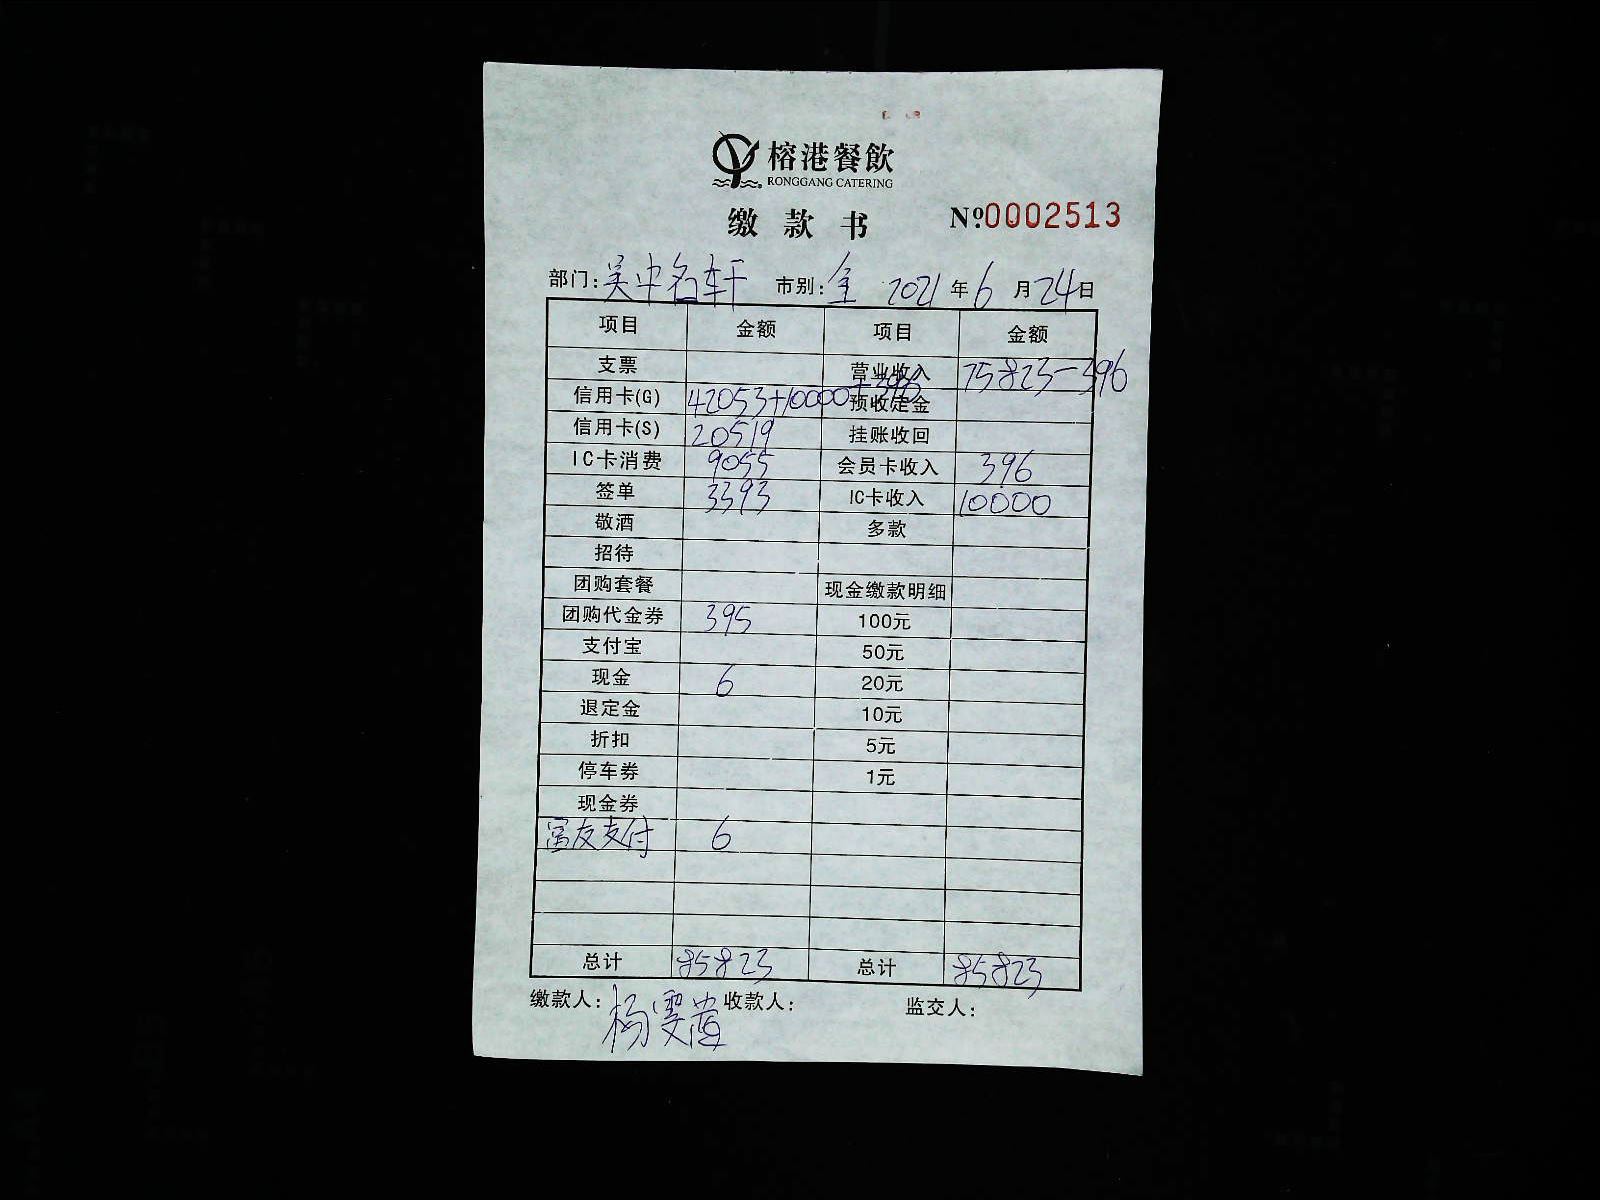 榕港餐飲
RONGGANG CATERING
缴款书 №0002513
部门:吴中名轩 市别:全 2021年6月24日
项目 金额 项目 金额
支票 营业收入 75823-396
信用卡(G) 42053+10000+396 预收定金
信用卡(S) 20519 挂账收回
IC卡消费 9055 会员卡收入 396
签单 3393 IC卡收入 10000
敬酒 多款
招待
团购套餐 现金缴款明细
团购代金券 395 100元
支付宝 50元
现金 6 20元
退定金 10元
折扣 5元
停车券 1元
现金券
富友支付 6
总计 85823 总计 85823
缴款人:杨雯 收款人: 监交人: